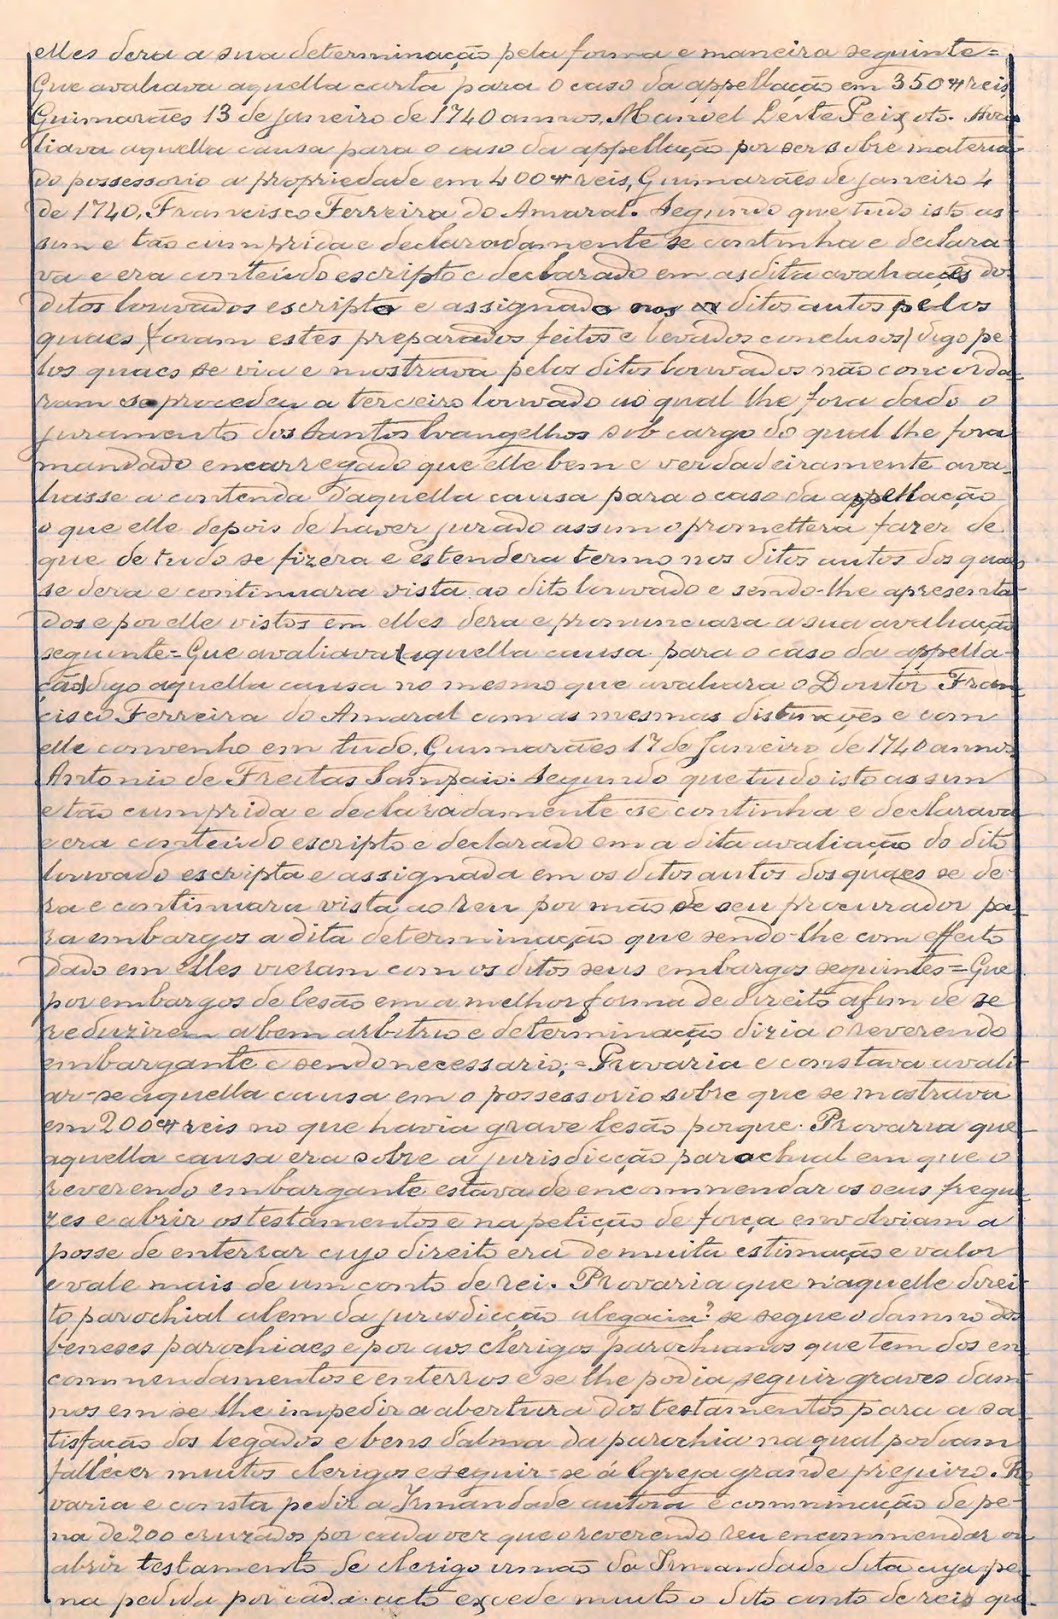 elles dera a sua determinação pela forma e maneira seguinte=
Que avaliava aquella carta para o caso da appellação em 350$ reis
Guimarães 13 de Janeiro de 1740 annos, Manoel Leite Peixoto. Ava-
liava aquella causa para o caso da appellação por ser sobre materia
do possessorio a propriedade em 400$ reis, Guimarães de janeiro 4
de 1740, Francisco Ferreira do Amaral. Segundo que tudo isto as-
sim e tão cumprida e declaradamente se continha e declara-
va e era conteúdo escripto e declarado em as dita avaliações dos
ditos louvados escripto e assignado nos ditos autos pelos
quaes (foram estes preparados feitos e levados conclusos) digo pe-
los quaes se via e mostrava pelos ditos louvados não concorda-
ram se procedeu a terceiro louvado ao qual lhe fora dado o
juramento dos Santos Evangelhos sob cargo do qual lhe fora
mandado encarregado que elle bem e verdadeiramente ava-
liasse a contenda d'aquella causa para o caso da appellação
o que elle depois de haver jurado assim o promettera fazer de
que de tudo se fizera e estendera termo nos ditos autos dos quaes
se dera e continuara vista ao dito louvado e sendo-lhe apresenta-
dos e por elle vistos em elles dera e pronunciara a sua avaliação
seguinte= Que avaliava (aquella causa para o caso da appella-
ção) digo aquella causa no mesmo que avaliara o Doutor Fran-
cisco Ferreira do Amaral com as mesmas distincções e com
elle convenho em tudo, Guimarães 17 de Janeiro de 1740 annos
Antonio de Freitas Sampaio. Segundo que tudo isto assim
e tão cumprida e declaradamente se continha e declarava
e era conteúdo escripto e declarado em a dita avaliação do dito
louvado escripta e assignada em os ditos autos dos quaes se de-
ra e continuara vista ao reu por mão de seu procurador pa-
ra embargos a dita determinação que sendo-lhe com effeito
dado em elles vieram com os ditos seus embargos seguintes= Que
por embargos de lesão em a melhor forma de direito afim de se
reduzirem a bem arbitrio e determinação dizia o reverendo
embargante e sendo necessario;= Provaria e constava avali-
ar-se aquella causa em o possessorio sobre que se mostrava
em 200$ reis no que havia grave lesão porque. Provaria que
aquella causa era sobre a jurisdicção parochial em que o
reverendo embargante estava de encommendar os seus fregue-
zes e abrir os testamentos e na petição de força envolviam a
posse de enterrar cujo direito era de muita estimação e valor
e vale mais de um conto de rei. Provaria que n'aquelle direi-
to parochial alem da jurisdicção alegacia? se segue o damno dos
beneses parochiaes e por aos clerigos parochianos que tem dos en-
commendamentos e enterros e se lhe podia seguir graves dam-
nos em se lhe impedir a abertura dos testamentos para a sa-
tisfação dos legados e bens d'alma da parochia na qual podiam
fallecer muitos clerigos e seguir-se á Igreja grande prejuizo. Pro-
varia e consta pedir a Irmandade autora e comminação de pe-
na de 200 cruzados por cada vez que o reverendo reu encommendar ou
abrir testamento de clerigo irmão da Irmandade dita cuja pe-
na pedida por cada acto excede muito o dito conto de reis que